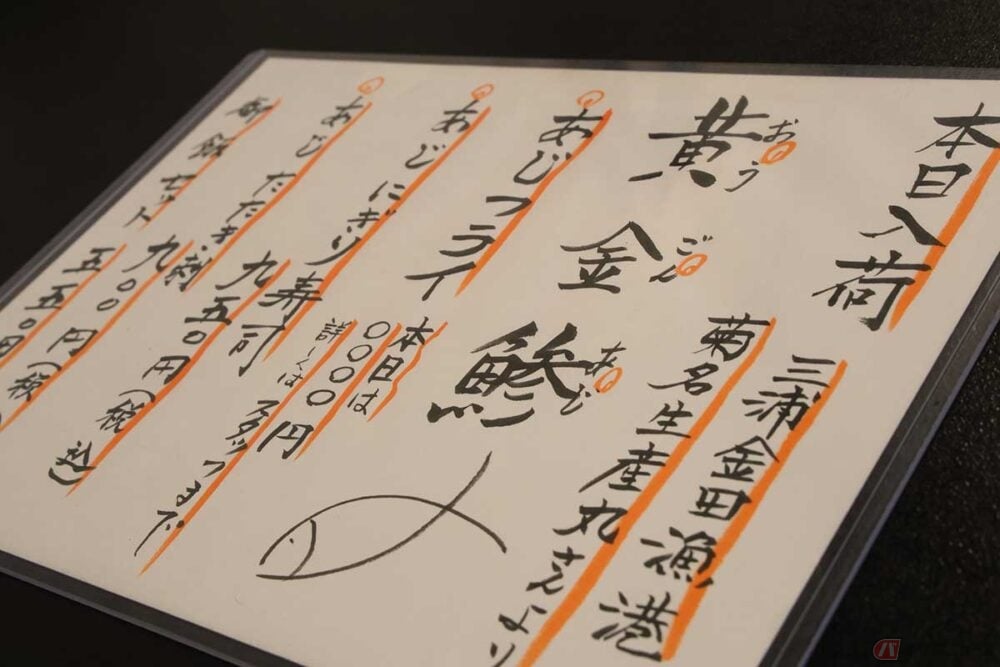 本日入荷
三浦金田漁港
菊名生産丸さんより
おうごんあじ
黄金鯵
あじフライ
本日は
〇〇〇〇円
詳しくはスタッフまで
あじにぎり寿司
九五〇円(税込)
あじたたき刺
九〇〇円(税
御飯セット
五五〇円